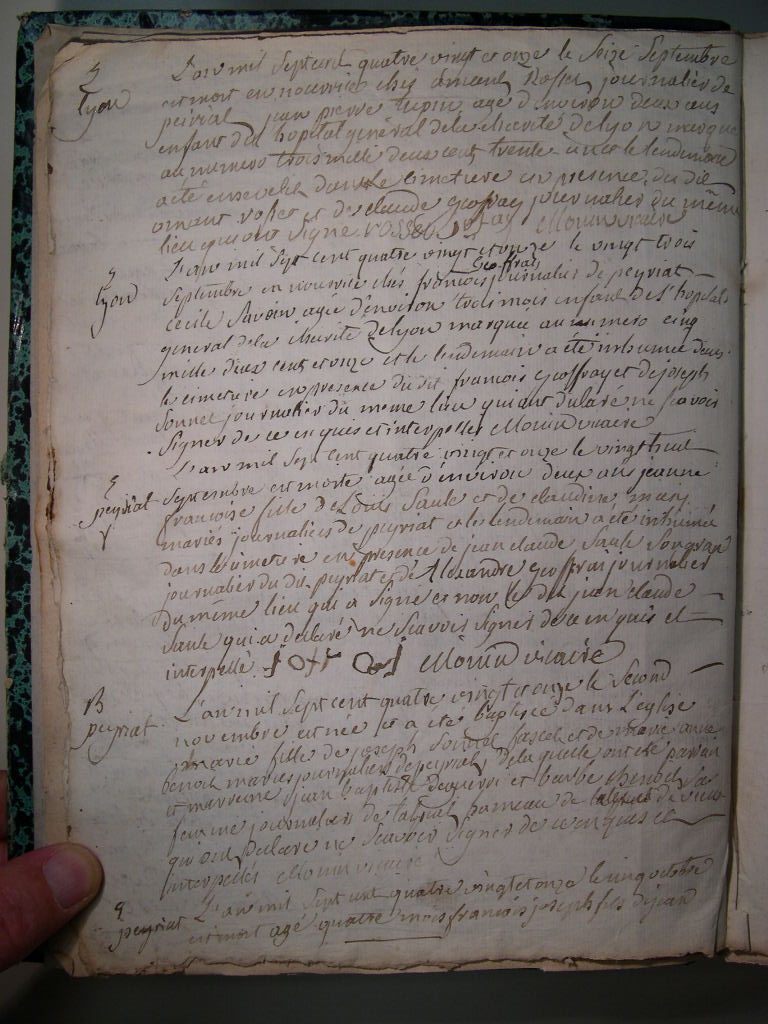 S
Lyon
L'an mil Sept cent quatre vingt et onze le Seize Septembre
est mort en nourrice chés amant Rosset journalier de
peiriat jean pierre lupin agé d'environ deux ans
enfant du hopital général de la charité de lyon marqué
au numero trois mille deux cent trente et le lendemain
a été enseveli dans le cimetiere en presence du dit
amant rosset et de claude geoffray journalier du même
lieu qui ont Signé rosset Monin vicaire
S
Lyon
L'an mil Sept cent quatre vingt et onze le vingt trois
Geoffrai
Septembre en nourrice chés francois journalier de peyriat
cecile Savoin agée d'environ trois mois enfant de l'hopital
général de la charité de lyon marquée au numero cinq
mille deux cent et onze et le lendemain a été inhumée dans
le cimetiere en presence du dit francois geoffray et de joseph
Sonnet journalier du meme lieu qui ont dclaré ne scavoir
Signer de ce enquis et interpellés Monin vicaire
L'an mil Sept cent quatre vingt et onze le vingt huit
S
peyriat
Septembre est morte agée d'environ deux ans jeanne
francoise fille de Louis Saule et de claudine
mariés journaliers de peyriat et le lendemain a été inhumée
dans le cimetiere en presence de jean claude Saule
journalier du dit peyriat et de Alexandre geoffrai journalier
du même lieu qui a Signé et non le dit jean claude
Saule qui a declaré ne Scavoir Signer de ce enquis et
interpellé Monin vicaire
B
peyriat
L'an mil Sept cent quatre vingt et onze le Second
novembre est née et a été baptisée dans L'eglise
marie fille de joseph pascal et de marie anne
benoit mariés journaliers de peyriat de laquelle ont été parrain
et marreine jean baptiste et barbe benoit Sa
femme journaliers de hameau de
qui ont declaré ne Scavoir Signer de ce enquis et
interpellés Monin vicaire
S
peyriat
L'an mil Sept cent quatre vingt et onze le cinq octobre
est mort agé quatre mois francois joseph fils de jean